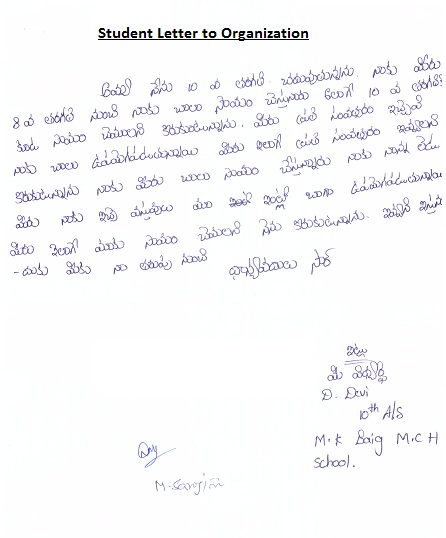 Student Letter to Organization
నేను 10 వ తరగతి చదువుతున్నాను. నాకు మీరు
8 వ తరగతి నుంచి నాకు చాలా సాయం చేస్తున్నారు. అలాగే 10 వ తరగతికి
కూడా సాయం చేయాలని కోరుకుంటున్నాను. మీరు ప్రతి సంవత్సరం ఇచ్చేవి
నాకు చాలా ఉపయోగపడుతున్నాయి మీరు ఇలాగే ప్రతి సంవత్సరం ఇవ్వాలని
కోరుకుంటున్నాను నాకు మీరు చాలా సాయం చేస్తున్నారు నాకు నాన్న లేడు
మీరు నాకు ఇచ్చే వస్తువులు మా ఇంట్లో బాగా ఉపయోగపడుతున్నాయి
మీరు ఇలాగే మాకు సాయం చేయాలని నేను కోరుకుంటున్నాను.
-దుకు మీకు నా తరుపు నుంచి ధన్యవాదాలు సార్
ఇట్లు
మీ విద్యార్థి
D. Devi
10th A/S
M.K Baig M.C H
School.